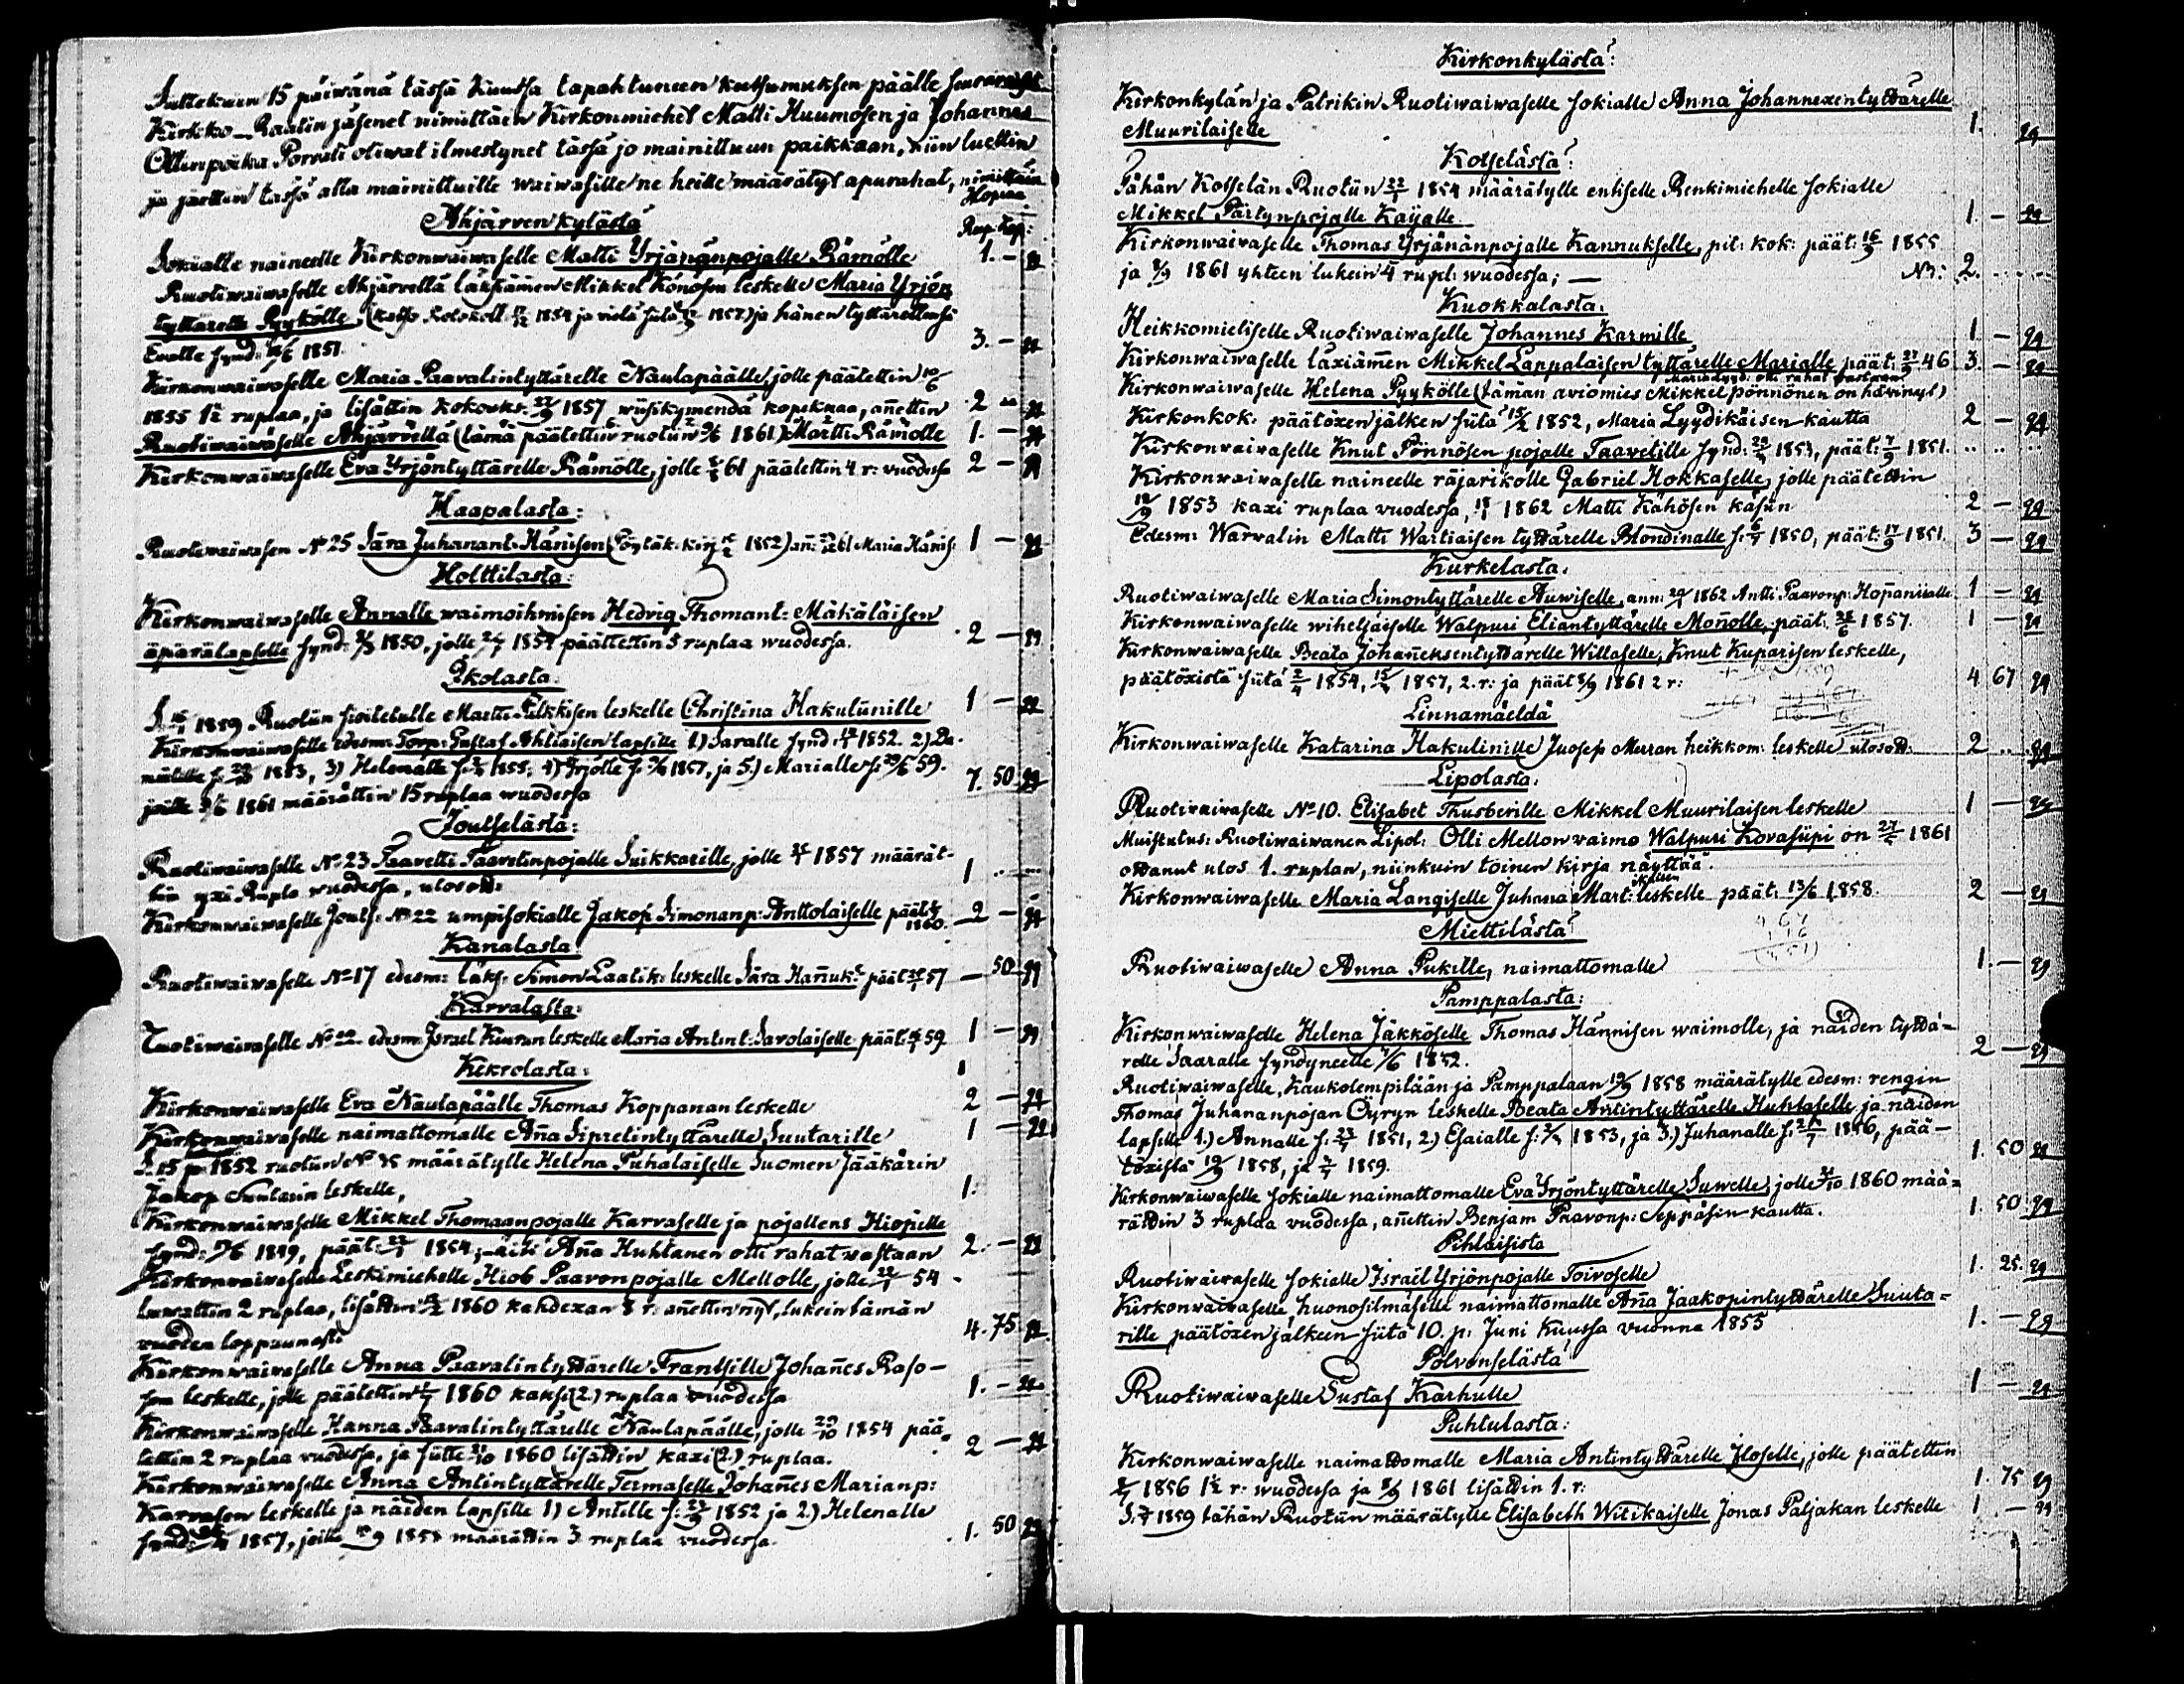 Suttekuun 15 päiwänä tässä kuussa tapahtuneen kutsumuksen päälle
Kirkko-Raatin jäsenet nimittäin Kirkonmiehet Matti Huumosen ja Johannes
Ollinpoika Porvali olivat ilmestynet tässä jo mainittuun paikkaan, niin luettin
ja jaettin tässä alla mainituille waiwasille ne heille määrätyt apurahat, nimittäin
Hopiaa
Ahjärven kylästä
Rup: Kop:
Sokialle naineelle Kirkonwaiwaselle Matti Yrjänänpojalle Rämölle 1. —
Ruotiwaiwaselle Ahjärvellä läksiämen Mikkel Könösen leskelle Maria Yrjön
tyttärelle Pyykölle, 1854 ja vielä 1857) ja hänen tyttärellensä
Evalle synd: 1851. 3. —
Kirkonwaiwaselle Maria Paavalintyttärelle Naulapäälle, jolle päätettin 10/6
1855 1½ ruplaa, ja lisättin Kokouks: 27/9 1857 wiisikymmendä kopekkaa, añettin 2
Ruotiwaiwaselle Ahjärvellä (tämä päätettin ruotiin 9/6 1861) Martti Rämölle 1. —
Kirkonwaiwaselle Eva Yrjöntyttärelle Rämölle, jolle 61 päätettin 4 r: vuodessa 2 —
Haapalasta:
Ruotiwaiwasen No 25 Sara Juhanant: Hänisen (Pöytäk. kirj 1852) añ: 61 Maria Hänis: 1 —
Holttilasta:
Kirkonwaiwaselle Annalle waimoihmisen Hedvig Thomant: Mäkäläisen
äpärälapselle synd: 1850, jolle 1854 päätettin 5 ruplaa wuodessa. 2 —
Ikolasta:
1859 Ruotiin Martti Pilkkisen leskelle Christina Hakuliinille 1 —
Kirkonwaiwaselle edesm: Torp: Gustaf Ahtiaisen lapsille 1) Saralle synd: 1852. 2) Da-
1853, 3) Helenalle s: 1855; 4) Yrjölle s: 1857, ja 5.) Marialle s: 20/5 59.
joille 9/6 1861 määrättin 15 ruplaa wuodessa 7. 50
Joutselästä:
Ruotiwaiwaselle No 23 Taavetti Taavetinpojalle Suikkarille, jolle 1857 määrät-
tin yxi Rupla wuodessa, ulosott: 1
Kirkonwaiwaselle Jouts: No 22 umpisokialle Jakop Simonanp: Anttolaiselle päät: 1860. 2 —
Kanalasta:
Ruotiwaiwaselle No 17 edesm: läks: Simon Laatik: leskelle Sara Hañuk: päät: 57 — 50
Karvalasta:
Ruotiwaiwaselle No 22 edesm: Israel Kuuran leskelle Maria Antint: Savolaiselle päät: 59 1 —
Kekrolasta:
Kirkonwaiwaselle Eva Naulapäälle Thomas Koppanan leskelle 2 —
Kirkonwaiwaselle naimattomalle Aña Sipretintyttärelle Suutarille 1 —
S. 15 p: 1852 ruotiin No määrätylle Helena Puhalaiselle Suomen Jääkärin
Jakop Suntasin leskelle, 1.
Kirkonwaiwaselle Mikkel Thomaanpojalle Karvaselle ja pojallens Hiopille
synd: 1849, päät: 1854; äiti Aña Huhtanen otti rahat wastaan 2. —
Kirkonwaiwaselle Leskimiehelle Hiob Paavonpojalle Mellolle, jolle 54
luwattin 2 ruplaa, lisättin 1860 kahdexan 8 r: añettin nyt, lukein tämän
vuoden loppuunasti 4. 75
Kirkonwaiwaselle Anna Paavalintyttärelle Frantsille Johañes Raso-
sen leskelle, jolle päätettin 1860 kaksi (2.) ruplaa wuodessa 1. —
Kirkonwaiwaselle Hanna Paavalintyttärelle Naulapäälle, jolle 29/10 1854 pää-
tettin 2 ruplaa vuodessa, ja siitte 1860 lisättin kaxi (2.) ruplaa. 2 —
Kirkonwaiwaselle Anna Antintyttärelle Termaselle Johañes Marianp:
Karvasen leskelle ja näiden lapsille 1) Antille s: 1852 ja 2.) Helenalle
synd: 1857, joille 1858 määrättin 3 ruplaa vuodessa. 1. 50
Kirkonkylästä:
Kirkonkylän ja Patrikin Ruotiwaiwaselle sokialle Anna Johannexentyttärelle
Muurilaiselle 1.
Kotselästä:
Tähän Kotselän Ruotiin 22/1 1854 määrätylle entiselle Renkimiehelle sokialle
Mikkel Pärtynpojalle Kaijalle 1. —
Kirkonwaivaselle Thomas Yrjänänpojalle Kannukselle, pit: kok: päät: 16/9 1855
ja 8/9 1861 yhteen lukein 4 rupl: wuodessa; — 2.
Kuokkalasta:
Heikkomieliselle Ruotiwaiwaselle Johannes Karmille 1 —
Kirkonwaiwaselle läxiämen Mikkel Lappalaisen tyttärelle Marialle päät: 27/9 46 3. —
Maria Lyyd: otti rahat vastaan
Kirkonwaiwaselle Helena Pyykölle (tämän aviomies Mikkel Pönnönen on hävinyt)
Kirkonkok. päätöxen jälken siitä 15/2 1852, Maria Lyydikäisen kautta 2 —
Kirkonwaiwaselle Knut Pönnösen pojalle Taavetille synd: 1853, päät: 1851.
Kirkonwaiwaselle naineelle räjärikolle Gabriel Hokkaselle, jolle päätettin
18/9 1853 kaxi ruplaa vuodessa, 1862 Matti Kähösen käsiin 2 —
Edesm: Warvalin Matti Wartiaisen tyttärelle Blondinalle s: 1850, päät: 17/9 1851. 3 —
Kurkelasta.
Ruotiwaiwaselle Maria Simontyttärelle Auwiselle, ann: 1862 Antti Paavonp: Hopanialle 1 —
Kirkonwaiwaselle wiheljäiselle Walpuri Eliantyttärelle Moñolle, päät: 1857. 1 —
Kirkonwaiwaselle Beata Johañeksentyttärelle Willaselle, Knut Kuparisen leskelle,
päätöxistä siitä 2/4 1854, 1857, 2. r: ja päät 8/9 1861 2 r: 4 67
Linnamäeldä
Kirkonwaiwaselle Katarina Hakulinille Juosep Murran heikkom: leskelle ulosott: 2
Lipolasta.
Ruotiwaiwaselle No 10. Elisabet Thusberille Mikkel Muurilaisen leskelle 1 —
Muistutus: Ruotiwaiwanen Lipol: Olli Mellon vaimo Walpuri Kovasiipi on 1861
ottanut ulos 1. ruplan, niinkuin toinen kirja näyttää.
Kirkonwaiwaselle Maria Langiselle Juhana Mart: leskelle päät: 13/6 1858. 2 —
Miettilästä
Ruotiwaiwaselle Anna Pukille, naimattomalle 1. —
Pamppalasta:
Kirkonwaiwaselle Helena Jäkköselle Thomas Hännisen waimolle, ja näiden tyttä-
relle Saaralle syndyneelle 1852. 2 —
Ruotiwaiwaselle, Kaukolempilään ja Pamppalaan 19/9 1858 määrätylle edesm: rengin
Thomas Juhananpojan Öyryn leskelle Beata Antintyttärelle Huhtaselle ja näiden
lapsille 1.) Annalle s: 1851, 2.) Esaialle s: 1853, ja 3.) Juhanalle s: 1856, pää-
töxistä 19/9 1858, ja 1859. 1. 50
Kirkonwaiwaselle sokialle naimattomalle Eva Yrjöntyttärelle Suwelle, jolle 1860 mää-
rättin 3 ruplaa vuodessa, añettin Benjam Paavonp: Seppäsin kautta. 1. 50
Pihlaisista
Ruotiwaiwaselle sokialle Israël Yrjönpojalle Toivoselle 1. 25.
Kirkonwaiwaselle huonosilmäselle naimattomalle Aña Jaakopintyttärelle Suuta-
rille, päätöxen jälkeen siitä 10. p: Juni kuussa vuonna 1855 1. —
Polvonselästä
Ruotiwaiwaselle Gustaf Karhulle 1 —
Puhtulasta:
Kirkonwaiwaselle naimattomalle Maria Antintyttärelle Iloselle, jolle päätettin
1856 1½ r: wuodessa ja 8/9 1861 lisättin 1. r: 1. 75
S. 1859 tähän Ruotiin määrätylle Elisabeth Witikaiselle Jonas Paljakan leskelle 1 —